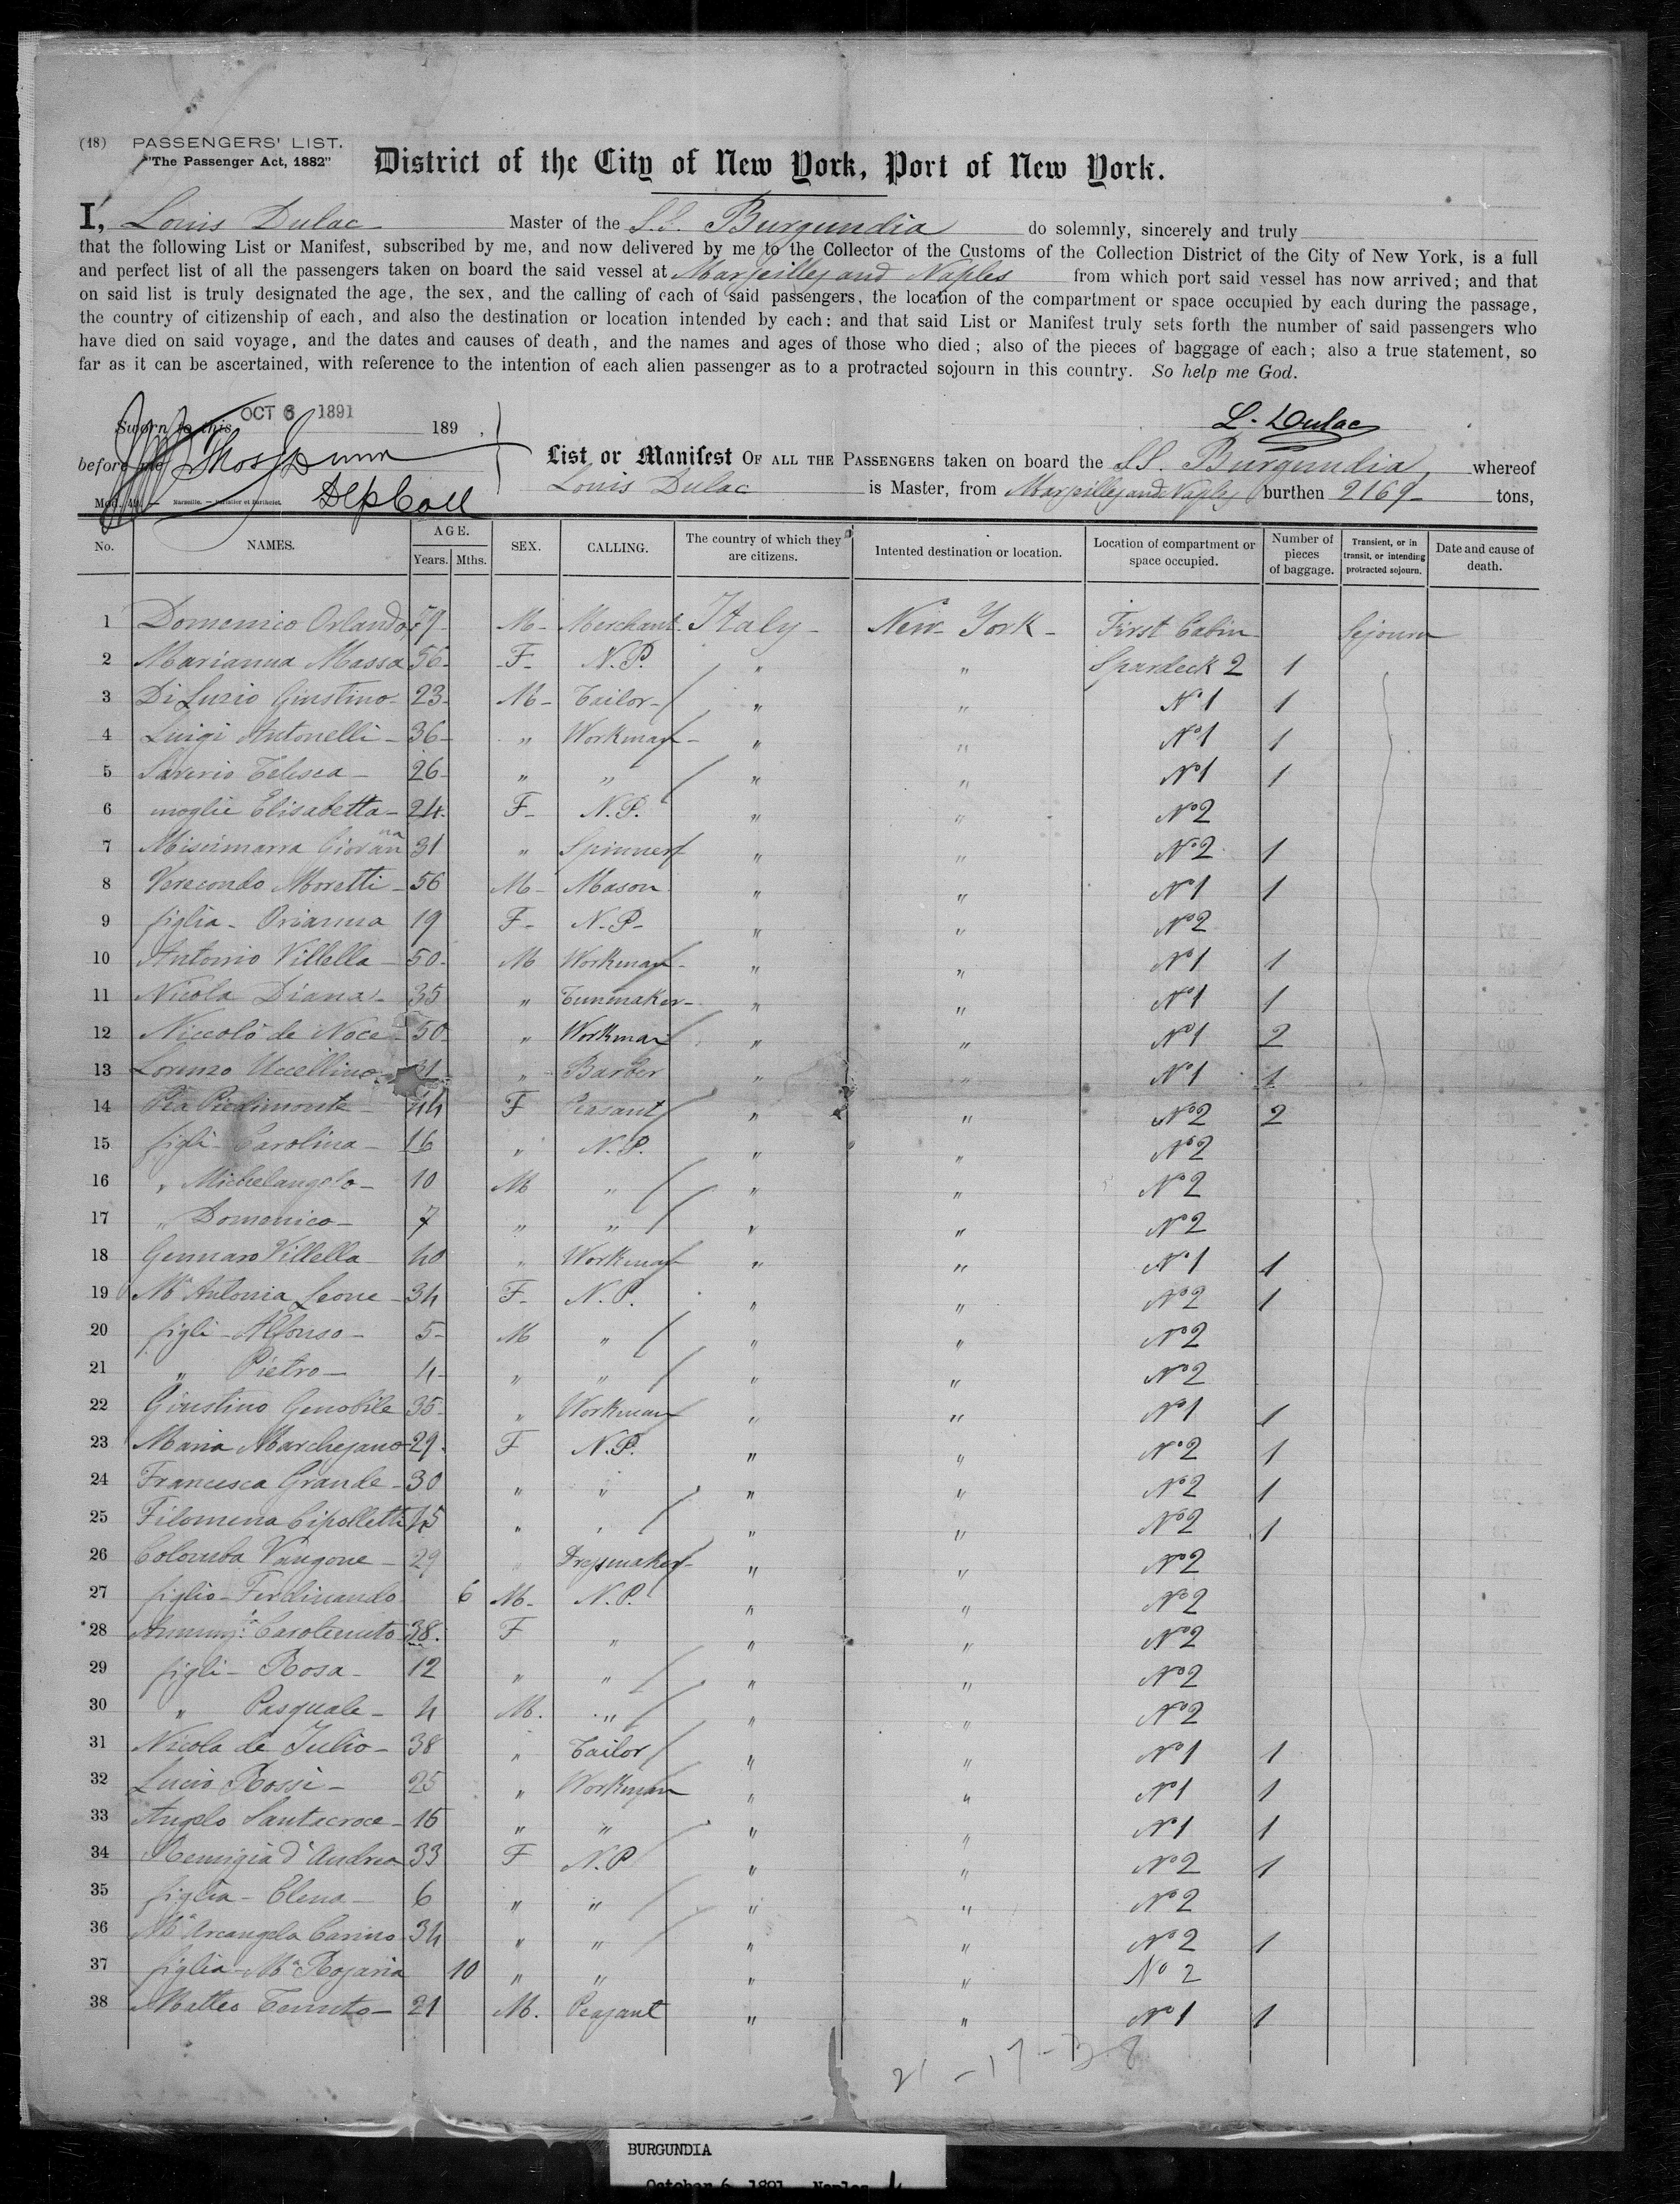 (18) PASSENGERS' LIST.
"The Passenger Act, 1882"
District of the City of New York, Port of New York.
I, Louis Dulac Master of the S.S. Burgundia do solemnly, sincerely and truly
that the following List or Manifest, subscribed by me, and now delivered by me to the Collector of the Customs of the Collection District of the City of New York, is a full
and perfect list of all the passengers taken on board the said vessel at Marseilles and Naples from which port said vessel has now arrived; and that
on said list is truly designated the age, the sex, and the calling of each of said passengers, the location of the compartment or space occupied by each during the passage,
the country of citizenship of each, and also the destination or location intended by each: and that said List or Manifest truly sets forth the number of said passengers who
have died on said voyage, and the dates and causes of death, and the names and ages of those who died; also of the pieces of baggage of each; also a true statement, so
far as it can be ascertained, with reference to the intention of each alien passenger as to a protracted sojourn in this country. So help me God.
Sworn to this OCT 6 1891 189 ,
L. Dulac
before me
Dep Coll
List or Manifest OF ALL THE PASSENGERS taken on board the S.S. Burgundia, whereof
Louis Dulac is Master, from Marseilles and Naples burthen 2169 tons,
No. NAMES. AGE. Years. Mths. SEX. CALLING. The country of which they are citizens. Intented destination or location. Location of compartment or space occupied. Number of pieces of baggage. Transient, or in transit, or intending protracted sojourn. Date and cause of death.
1 Domenico Orlando 59 M Merchant Italy New York First Cabin Sejourn
2 Marianna Massa 56 F N.P. " " Spardeck 2 1
3 Di Luzio Giustino 23 M Tailor " " No 1 1
4 Luigi Antonelli 36 " Workman " " No 1 1
5 Saverio Telesca 26 " " " " No 1 1
6 moglie Elisabetta 24 F N.P. " " No 2
7 Giovanna 31 " Spinner " " No 2 1
8 Verecondo Moretti 56 M Mason " " No 1 1
9 figlia Orianna 19 F N.P. " " No 2
10 Antonio Villella 50 M Workman " " No 1 1
11 Nicola Diana 35 " " " No 1 1
12 Niccolò de Noce 50 " Workman " " No 1 2
13 Lorenzo Uccellino 31 " Barber " " No 1 1
14 Pia Piedimonte 44 F Peasant " " No 2 2
15 figli Carolina 16 " N.P. " " No 2
16 " Michelangelo 10 M " " " No 2
17 " Domenico 7 " " " " No 2
18 Gennaro Villella 40 " Workman " " No 1 1
19 Ma Antonia Leone 34 F N.P. " " No 2 1
20 figli Alfonso 5 M " " " No 2
21 " Pietro 4 " " " " No 2
22 Giustino Genobile 35 " Workman " " No 1 1
23 Maria Marchesano 29 F N.P. " " No 2 1
24 Francesca Grande 30 " " " " No 2 1
25 Filomena Cipolletti 45 " " " " No 2 1
26 Colomba Vangone 29 " Dressmaker " " No 2
27 figlio Ferdinando 6 M N.P. " " No 2
28 Annunz.ta Carotenuto 38 F " " " No 2
29 figli Rosa 12 " " " " No 2
30 " Pasquale 4 M. " " " No 2
31 Nicola de Julio 38 " Tailor " " No 1 1
32 Lucio Rossi 25 " Workman " " No 1 1
33 Angelo Santacroce 16 " " " " No 1 1
34 Remigia d'Andrea 33 F N.P " " No 2 1
35 figlia Elena 6 " " " " No 2
36 Ma Arcangela Carino 34 " " " " No 2 1
37 figlia Ma Rosaria 10 " " " " No 2
38 Matteo Tenuto 21 M. Peasant " " No 1 1
21 - 17 - 38
BURGUNDIA
October 6, 1891 Naples